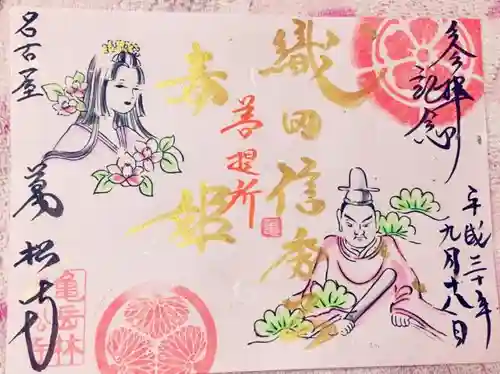 参拝
記念
平成三十年
九月十八日
織田信秀
菩提所
亀
春姫
名古屋
萬松寺
亀岳林